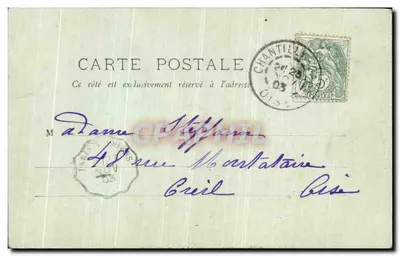 CARTE POSTALE
Ce côté est exclusivement réservé à l'adresse
CHANTILLY
OISE
03
Madame Steppann
48 rue Montataire
Creil Oise
03